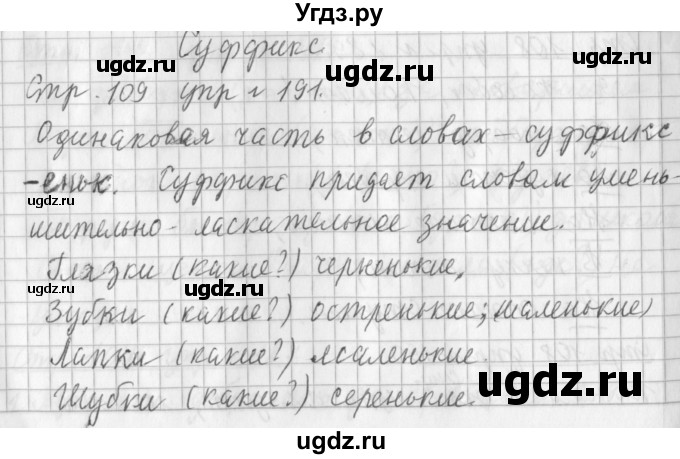 Угдз.ру
Суффикс
Стр. 109 упр г 191.
Одинаковая часть в словах - суффикс
-еньк. Суффикс придает словам умень-
шительно-ласкательное значение.
Глазки (какие?) черненькие,
Зубки (какие?) остренькие; (маленькие)
Лапки (какие?) маленькие.
Шубки (какие?) серенькие.
ugdz.ru
ugdz.ru
ugdz.ru
ugdz.ru
ugdz.ru
ugdz.ru
ugdz.ru
ugdz.ru
ugdz.ru
ugdz.ru
ugdz.ru